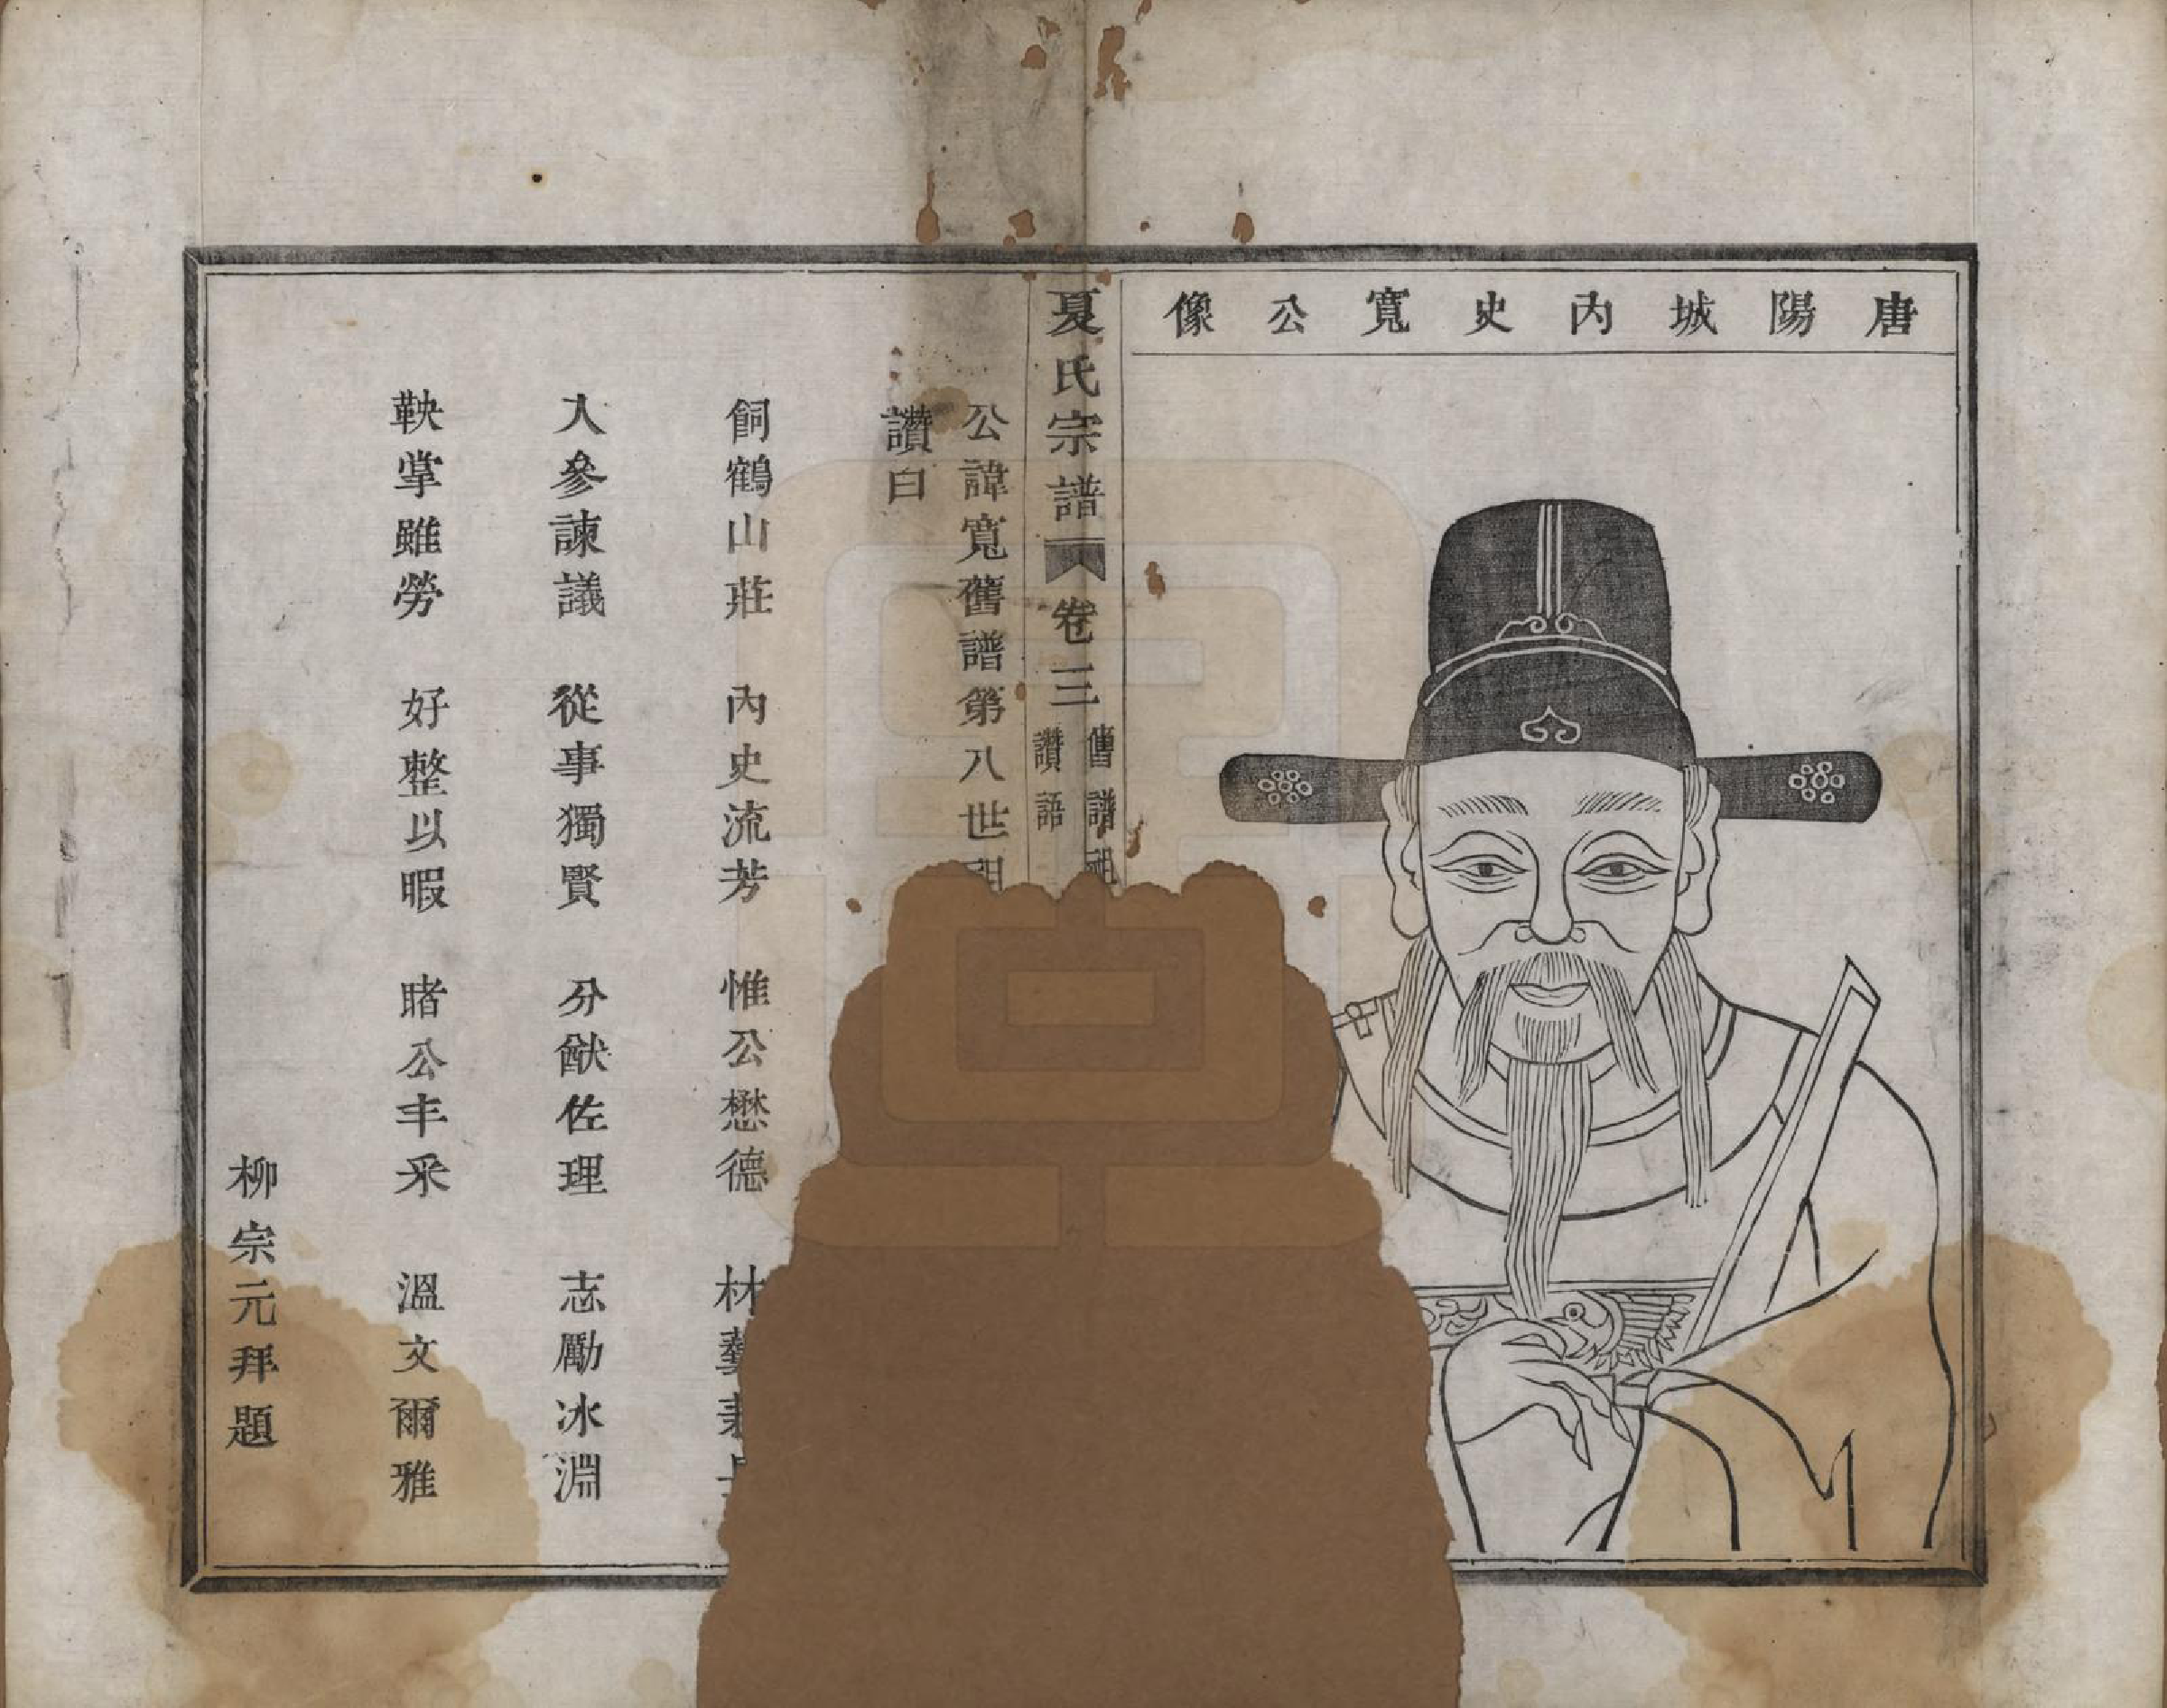 唐陽城內史寬公像
夏氏宗譜 卷三 舊譜祖
讚語
公諱寬舊譜第八世祖
讚白
飼鶴山莊 內史流芳 惟公懋德 林藝
入參諫議 從事獨賢 分猷佐理 志勵冰淵
鞅掌雖勞 好整以暇 睹公丰采 溫文爾雅
柳宗元拜題